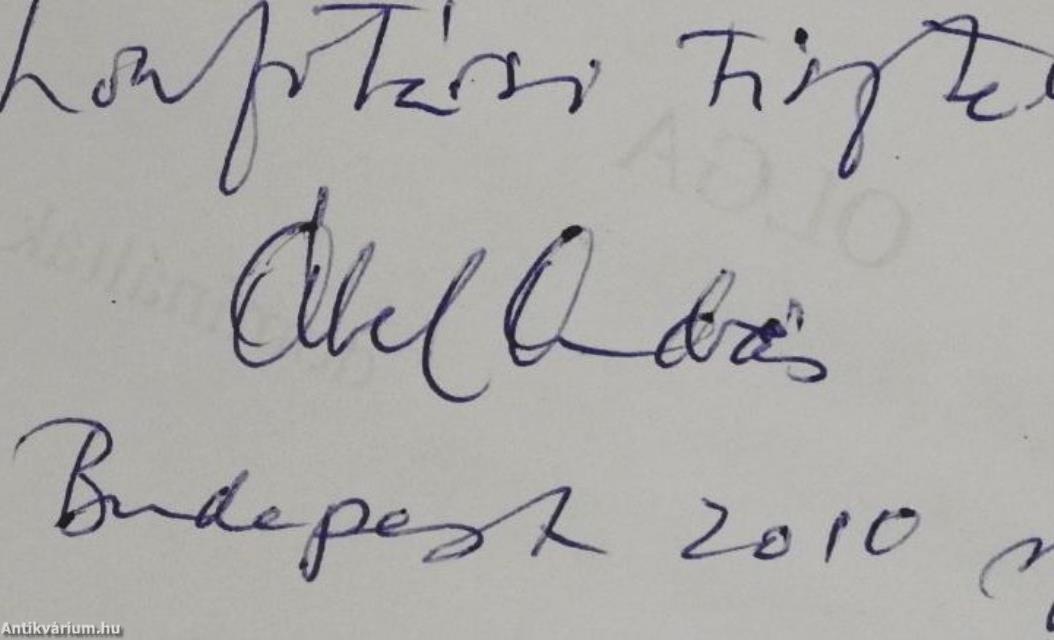 honfitársi tisztel
Ábel András
Budapest 2010
Antikvárium.hu